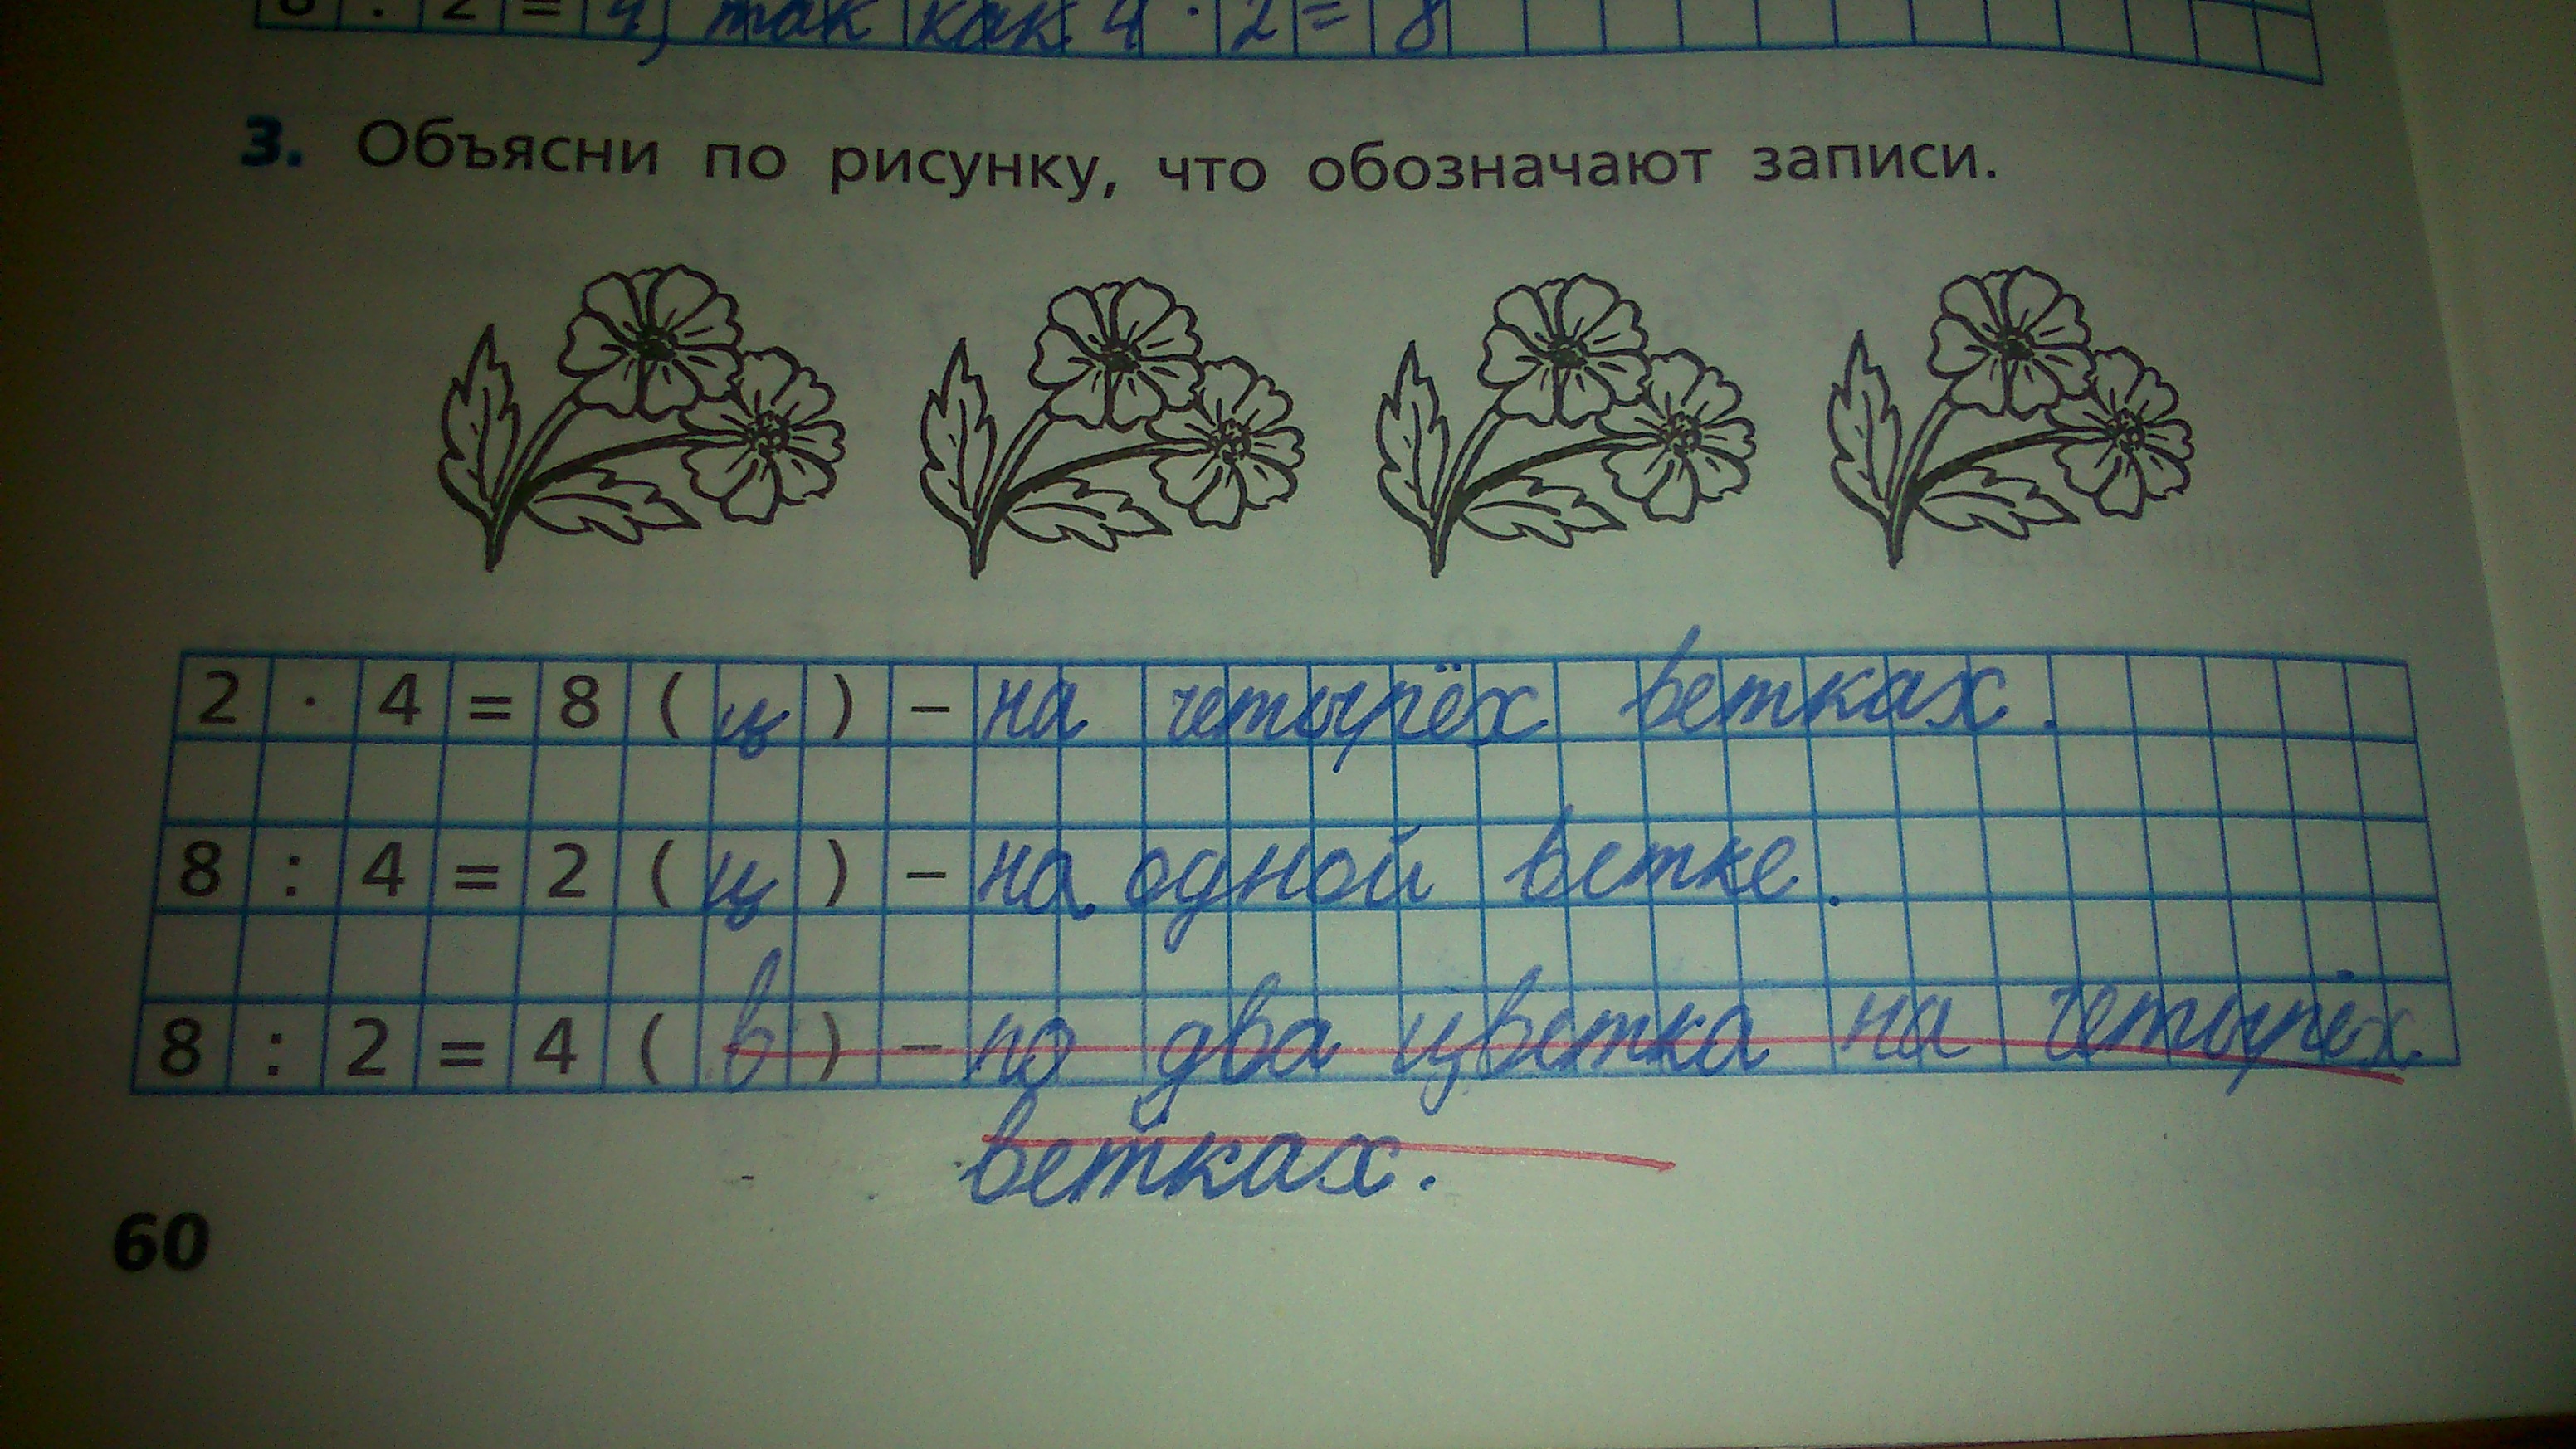 8 : 2 = 4, так как 4 · 2 = 8
3. Объясни по рисунку, что обозначают записи.
2 · 4 = 8 (ц) – на четырёх ветках.
8 : 4 = 2 (ц) – на одной ветке.
8 : 2 = 4 (в) – по два цветка на четырёх
ветках.
60